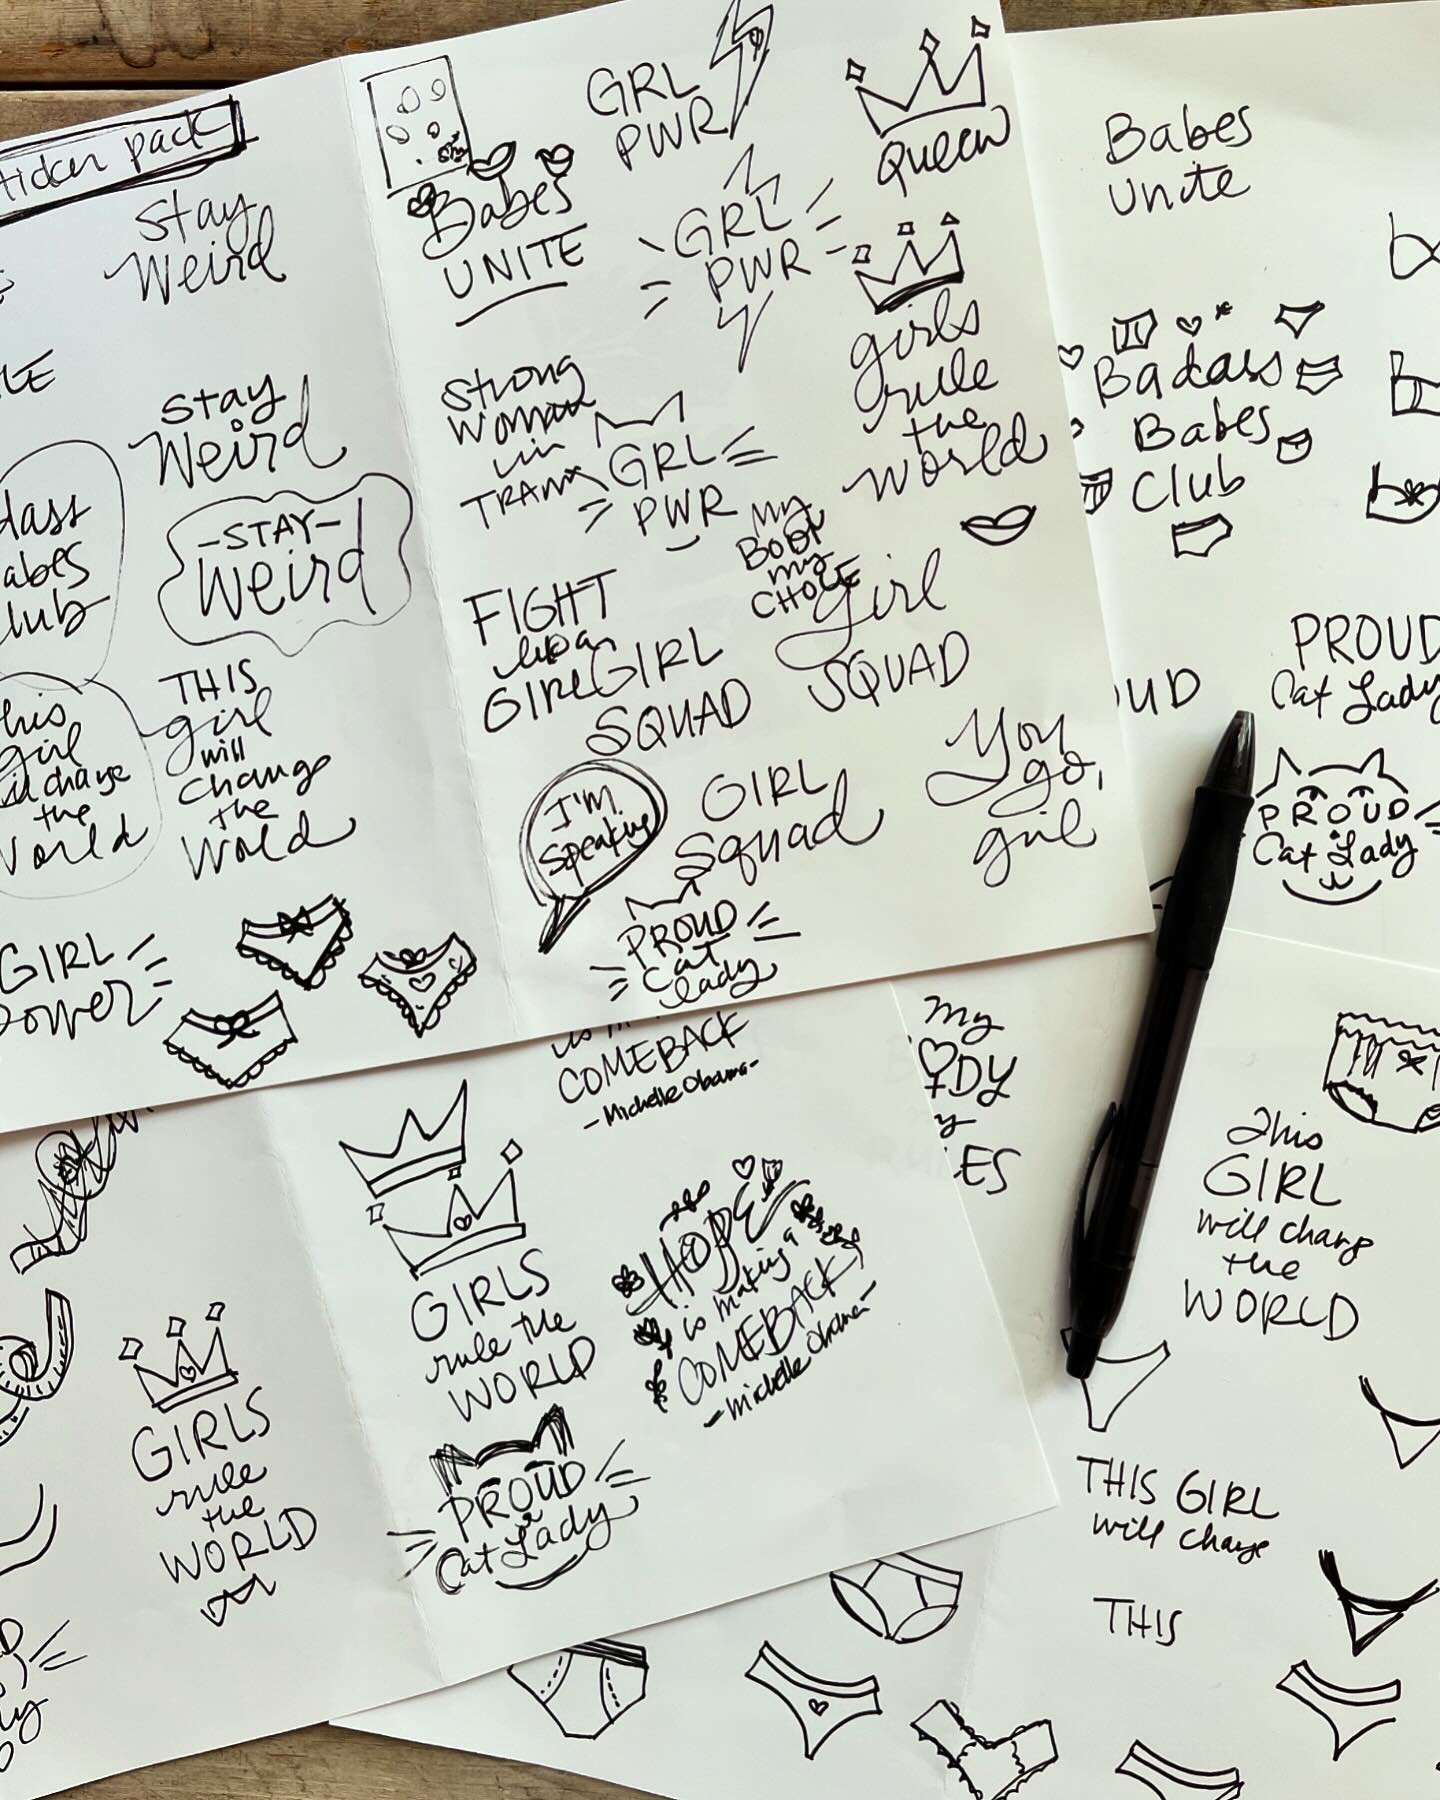 sticker pack
Stay
Weird
Stay
Weird
-STAY-
Weird
Babes
Club
This
girl
will change
the
World
THIS
girl
will
change
the
World
GIRL
Power
Babes
UNITE
GRL
PWR
GRL
PWR
Queen
girls
rule
the
World
Strong
Woman
in
TRAINING
GRL
PWR
My
BODY
my
CHOICE
FIGHT
like a
GIRL
GIRL
SQUAD
girl
SQUAD
I'M
Speaking
GIRL
Squad
You
go,
girl
PROUD
Cat
Lady
Babes
unite
Badass
Babes
Club
PROUD
Cat Lady
PROUD
Cat Lady
COMEBACK
-Michelle Obama-
GIRLS
rule the
WORLD
HOPE
is making a
COMEBACK
-Michelle Obama-
PROUD
Cat Lady
GIRLS
rule
the
WORLD
my
BODY
This
GIRL
will change
the
WORLD
THIS GIRL
will change
THIS